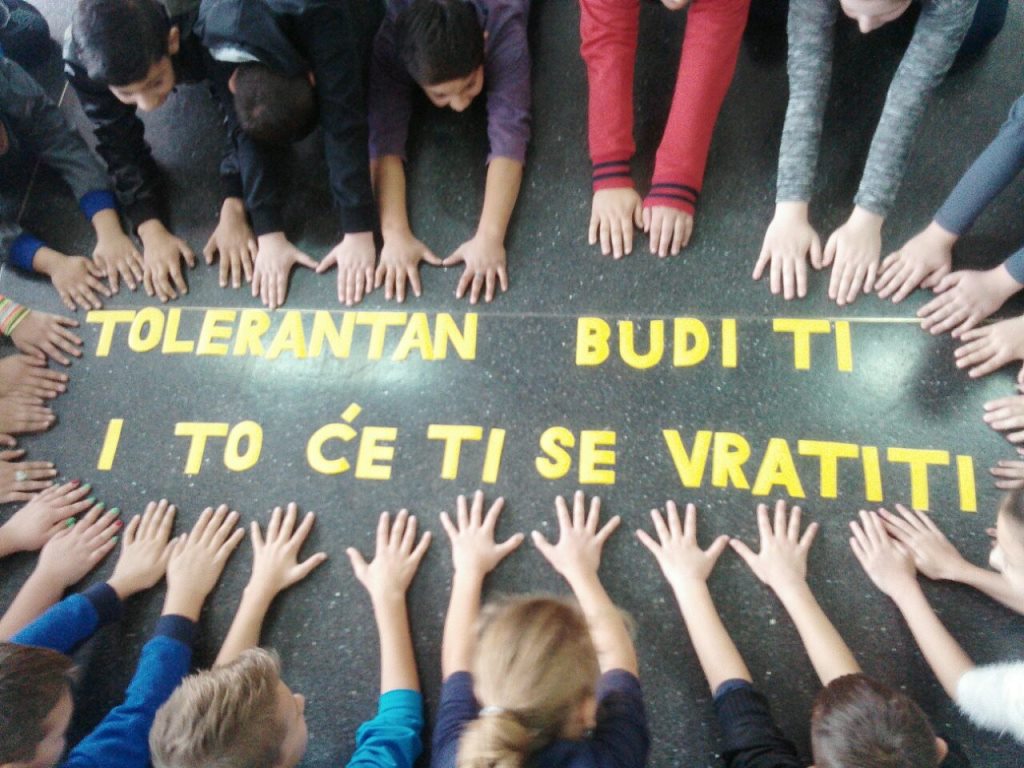 TOLERANTAN BUDI TI
I TO ĆE TI SE VRATITI